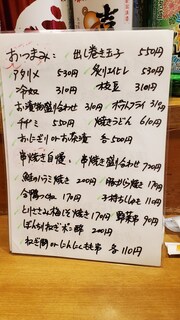 おつまみ: 出し巻き玉子 550円
アタリメ 530円 炙りエイヒレ 530円
冷奴 310円 枝豆 310円
お漬物盛り合わせ 310円 ポテトフライ 310円
チヂミ 550円 焼きうどん 610円
おにぎり or お茶漬 各500円
串焼き自慢: 串焼き盛り合わせ 720円
鮭のハラミ焼き 200円 豚バラ焼き 170円
合鴨つくね 170円 子持ちししゃも 110円
とりささみ梅しそ焼き 170円 野菜串 90円
ぼんちりねぎポン酢 200円
ねぎ間 or にんにくもも串 各110円